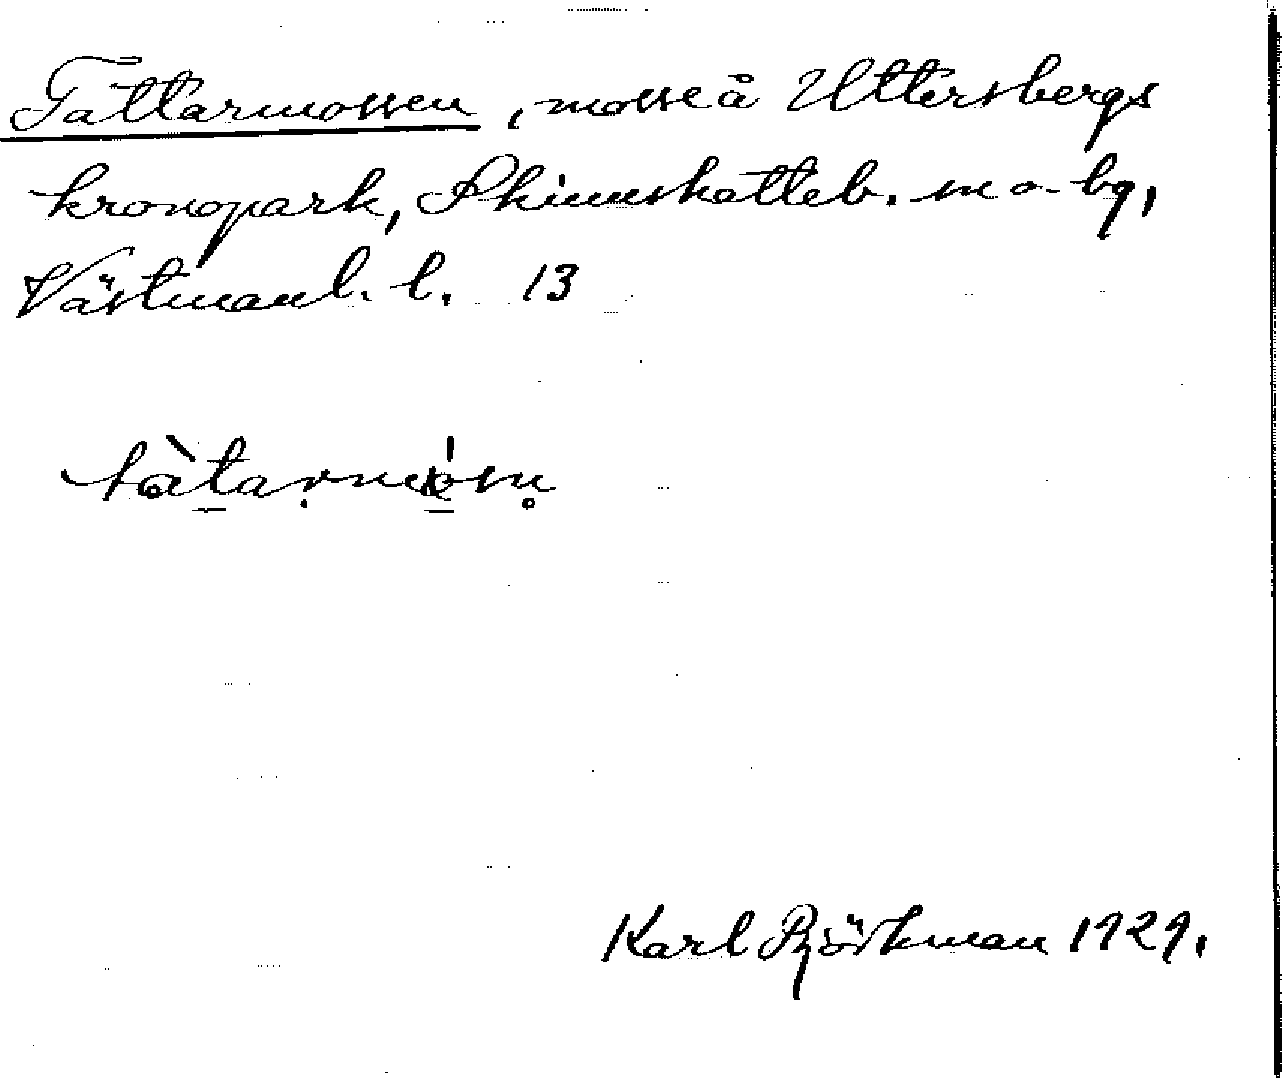 Tattarmossen, mosse å Uttersbergs
kronopark, Skinnskatteb. sn o. bg,
Västmanl. l. 13
Karl Björkman 1929.